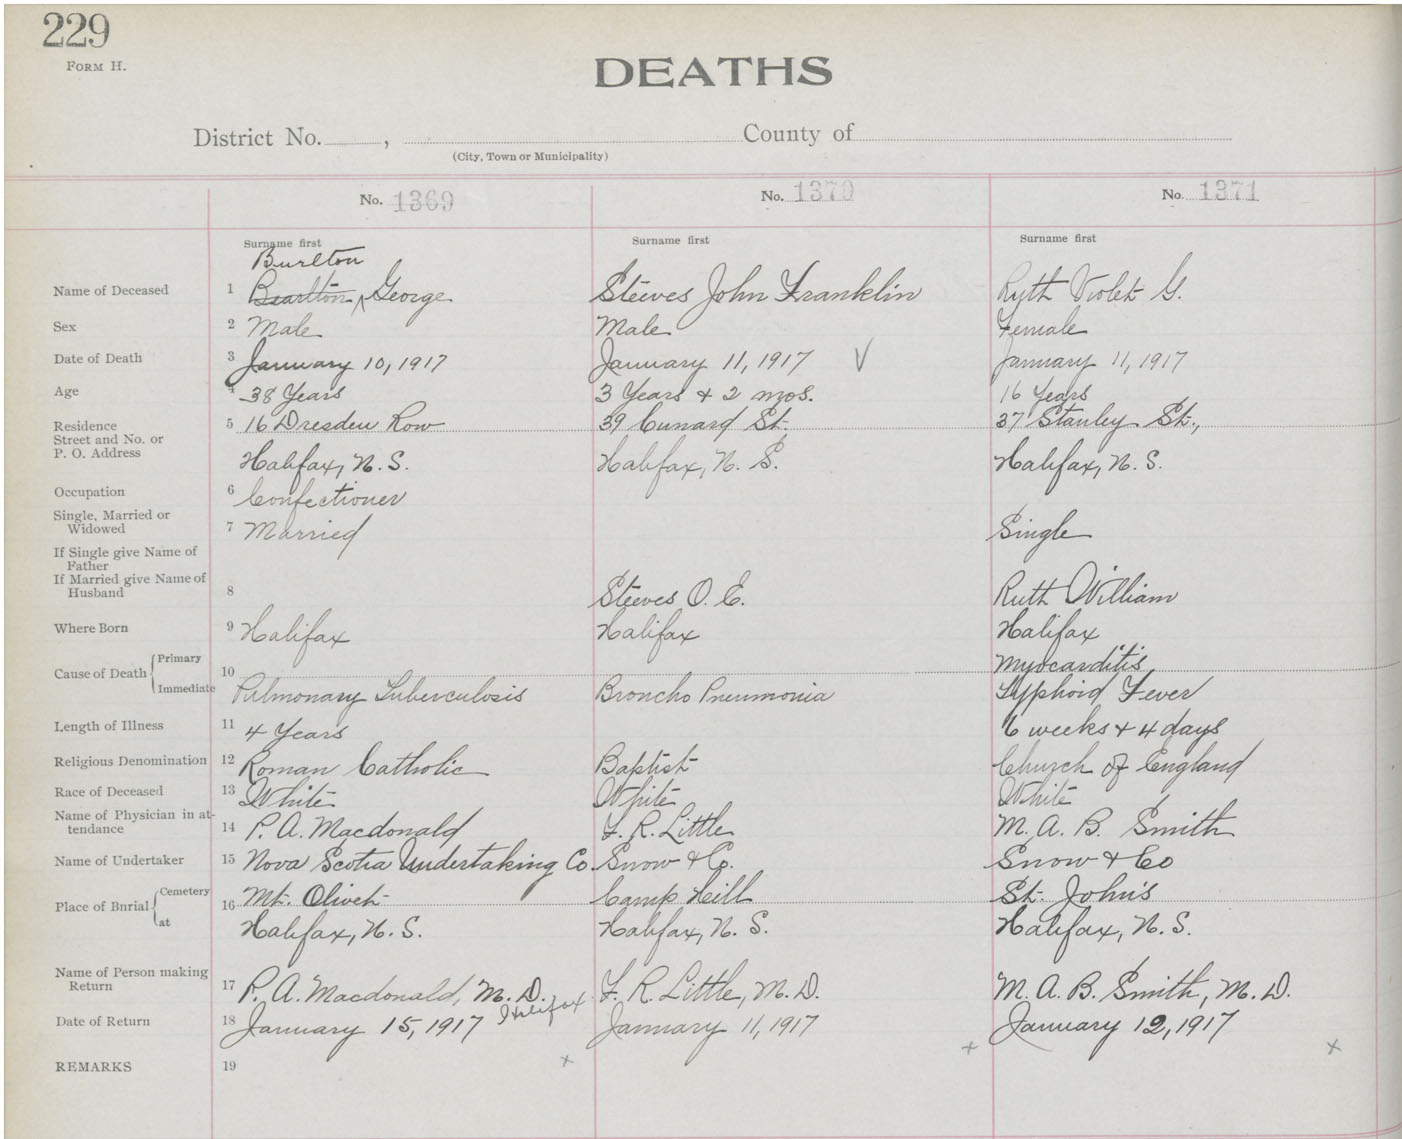 229
FORM H.
DEATHS
District No. , County of
(City, Town or Municipality)
No. 1369 No. 1370 No. 1371
Surname first Surname first Surname first
Burlton
Name of Deceased 1 Bearlton George Steeves John Franklin Ruth Violet G.
Sex 2 Male Male Female
Date of Death 3 January 10, 1917 January 11, 1917 V January 11, 1917
Age 4 38 Years 3 Years & 2 mos. 16 Years
Residence 5 16 Dresden Row 39 Cunard St. 37 Stanley St.,
Street and No. or
P. O. Address Halifax, N. S. Halifax, N. S. Halifax, N. S.
Occupation 6 Confectioner
Single, Married or
Widowed 7 Married Single
If Single give Name of
Father
If Married give Name of
Husband 8 Steeves O. E. Ruth William
Where Born 9 Halifax Halifax Halifax
Primary Myocarditis
Cause of Death 10
Immediate Pulmonary Tuberculosis Broncho Pneumonia Typhoid Fever
Length of Illness 11 4 Years 6 weeks & 4 days
Religious Denomination 12 Roman Catholic Baptist Church of England
Race of Deceased 13 White White White
Name of Physician in at-
tendance 14 P. A. Macdonald F. R. Little M. A. B. Smith
Name of Undertaker 15 Nova Scotia Undertaking Co. Snow & Co. Snow & Co
Cemetery Mt. Olivet Camp Hill St. John's
Place of Burial 16
at Halifax, N. S. Halifax, N. S. Halifax, N. S.
Name of Person making
Return 17 P. A. Macdonald, M. D. Halifax F. R. Little, M. D. M. A. B. Smith, M. D.
Date of Return 18 January 15, 1917 January 11, 1917 January 12, 1917
REMARKS 19 x x x